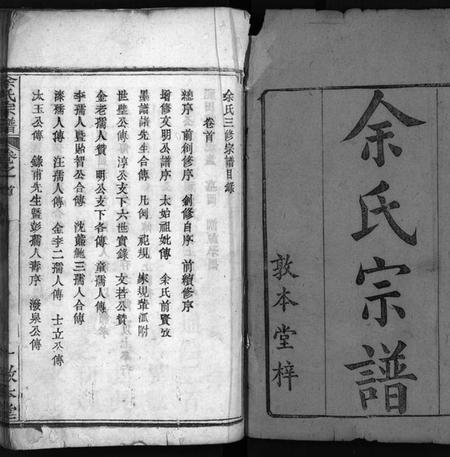 余氏宗譜
敦本堂梓
余氏三修宗譜目錄
卷首
總序 前刱修序 創修自序 前續修序
增修文明公譜序 太始祖妣傳 余氏前賢攷
墨譜諸先生合傳 凡例 祠規 家規輩派附
世璧公傳 淳公支下六世實錄 文若公贊
金老孺人贊 明公支下各傳 童孺人傳
李孺人暨貽智公合傳 沈蕭鮑三孺人合傳
孺人傳 汪孺人傳 金李二孺人傳 士立公傳
汰王公傳 錄甫先生暨彭孺人壽序 潑泉公傳
余氏宗譜 卷之首
一 敦本堂